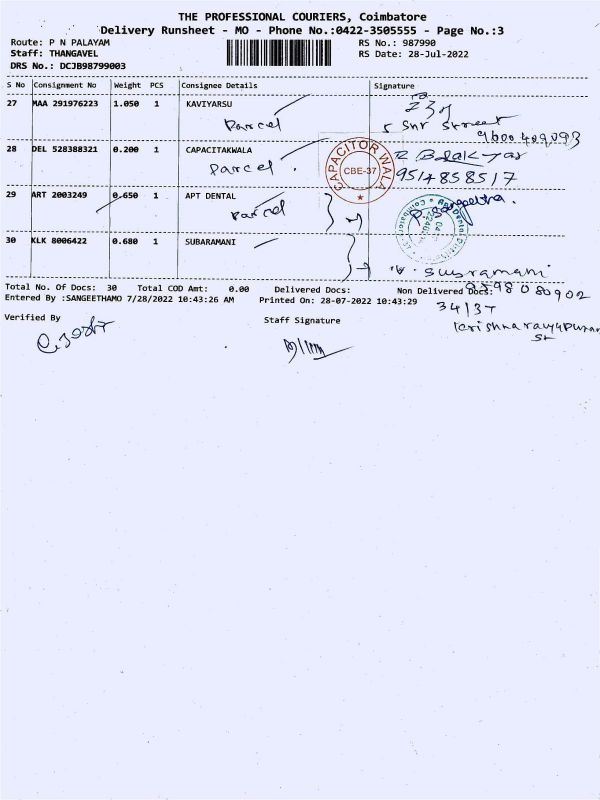 THE PROFESSIONAL COURIERS, Coimbatore
Delivery Runsheet - MO - Phone No.:0422-3505555 - Page No.:3
Route: P N PALAYAM
RS No.: 987990
Staff: THANGAVEL
RS Date: 28-Jul-2022
DRS No.: DCJB98799003
S No Consignment No Weight PCS Consignee Details Signature
27 MAA 291976223 1.050 1 KAVIYARSU
Parcel
street
28 DEL 528388321 0.200 1 CAPACITAKWALA
Parcel
CAPACITOR WALA
CBE-37
9514858517
29 ART 2003249 0.650 1 APT DENTAL
Parcel
30 KLK 8006422 0.680 1 SUBARAMANI
Total No. Of Docs: 30 Total COD Amt: 0.00 Delivered Docs: Non Delivered Docs:
Entered By :SANGEETHAMO 7/28/2022 10:43:26 AM Printed On: 28-07-2022 10:43:29
34/37
Verified By
Staff Signature